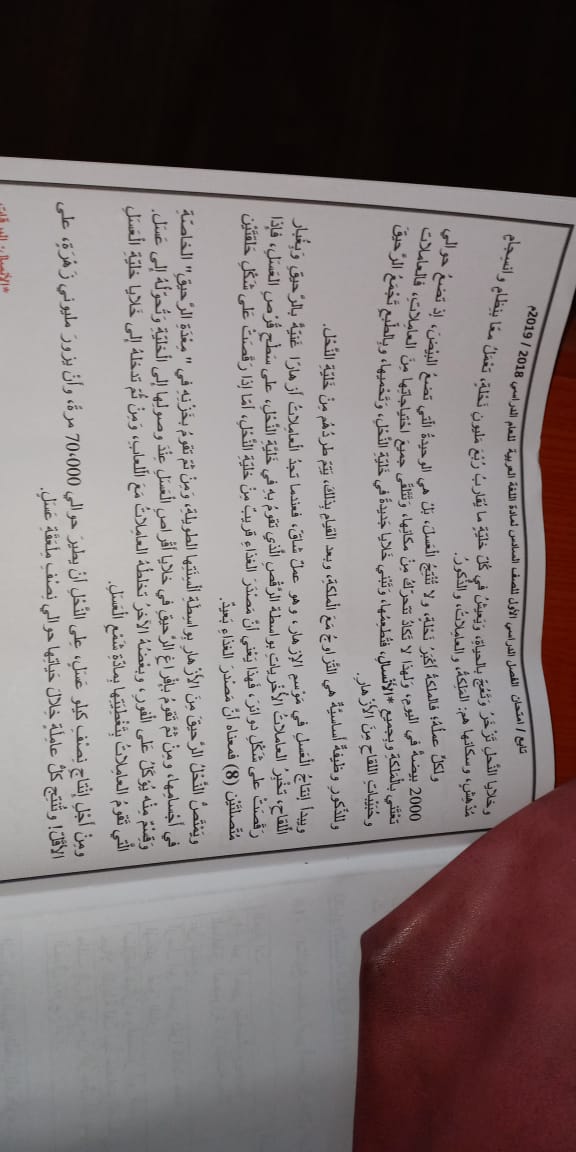 تابع / امتحان الفصل الدراسي الأول للصف السادس لمادة اللغة العربية للعام الدراسي 2018 / 2019م
وخلايا النَّحل تَزْخَرُ وَتَعُجُّ بالحياةِ، وَيَعيشُ في كُلِّ خَليَّةٍ ما يُقارِبُ رُبْعَ مَليونِ نَحْلَةٍ، تَعْمَلُ معًا بِنِظامٍ وانسِجامٍ
مُدْهِشٍ، وسكانها هم: المَلِكةُ، والعاملاتُ، والذُّكورُ.
ولكلٍّ عملُهُ؛ فالملكةُ أكبَرُ نَحْلَة، ولا تُنْتِجُ الْعَسلَ، بَلْ هي الوحيدةُ الَّتي تَضعُ البَيْضَ، إذْ تَضَعُ حوالي
2000 بيضةٍ في اليومِ، وَلِهذا لا تَكادُ تتحرَّكُ مِنْ مكانِها، وَتَتَلَقَّى جميعَ احْتياجاتِها مِنَ العاملاتِ، فالعاملات
تَعْتَني بالْمَلَكةِ وبجميعِ *الأَنْسالِ، فَتُطْعِمُها، وَتَبْني خَلايا جَديدةً في خَليَّةِ النَّحْلِ، وَتَحْميها، وبالطَّبعِ تَجْمَعُ الرَّحيقَ
وحُبَيْباتِ اللقَاحِ مِنَ الأَزْهارِ.
وللذكورِ وظيفةٌ أساسيَّةٌ هي التَّزاوجُ مَعَ الْملكةِ، وبعد القيامِ بِذلكَ، يَتِمُّ طَردُهُم مِنْ خَليَّةِ النَّحْلِ.
ويبدأُ إنتاجُ الْعَسلِ في مَوْسِمِ الإِزهارِ، وهو عملٌ شاقٌّ، فعندما تَجدُ الْعاملاتُ أَزهارًا غَنيَّةً بالرَّحيقِ وَبِغُبارِ
اللَّقاحِ، تُخْبِرُ العاملاتِ الأُخْرياتِ بِواسطَةِ الرَّقْصِ الَّذي تقومُ بِهِ في خَليَّةِ النَّحْلِ، على سَطْحِ قُرْصِ العَسَلِ، فإذا
رَقَصَتْ على شَكْلِ دوائرَ، فهذا يَعْني أنَّ مَصْدَرَ الغذاءِ قريبٌ مِنْ خليَّةِ النَّحْلِ، أمّا إذا رَقَصتْ عَلى شَكْلِ حَلقَتَيْنِ
مُتَّصِلَتَيْنِ (8) فمعناهُ أنَّ مَصْدَرَ الغذاءِ بَعيدٌ.
وَيَمْتَصُّ النَّحْلُ الرَّحيقَ مِنَ الأَزْهارِ بِواسطَةِ أَلْسِنَتِها الطَّويلةِ، وَمِنْ ثمَّ تقومُ بِخَزْنِهِ في " مِعَدِةِ الرَّحيقِ" الخاصَّةِ
في أجْسامِها، وَمِنْ ثمَّ تقومُ بِإِفْراغِ الرَّحيقِ في خَلايا أقْراصِ الْعَسَلِ عِنْدَ وصولِها إلى الْخَليَّةِ وتُحَوِّلُهُ إلى عَسَلٍ.
وَقِسْمٌ مِنْه يُؤكَلُ عَلى الْفَورِ، وبعْضُهُ الآخرُ تَخْلطُهُ العاملاتُ مَعَ اللّعابِ، وَمِنْ ثمَّ تدخلهُ إلى خَلايا خَليَّةِ العَسَلِ
الَّتي تَقومُ العامِلاتُ بِتَغْطِيَتِها بِمادَّةِ شَمْعِ العَسَلِ.
وَمِنْ أَجْلِ إِنْتاجِ نِصْفِ كيلو عَسَلٍ، على النَّحْلِ أَنْ يَطيرَ حَوالي 70،000 مرةٍ، وَأَنْ يزورَ مليوني زَهْرَةٍ، على
الأقَلّ! وتُنْتِجُ كلُّ عاملةٍ خِلالَ حَياتِها حوالي نِصْفِ مِلْعَقَةِ عَسَلٍ.